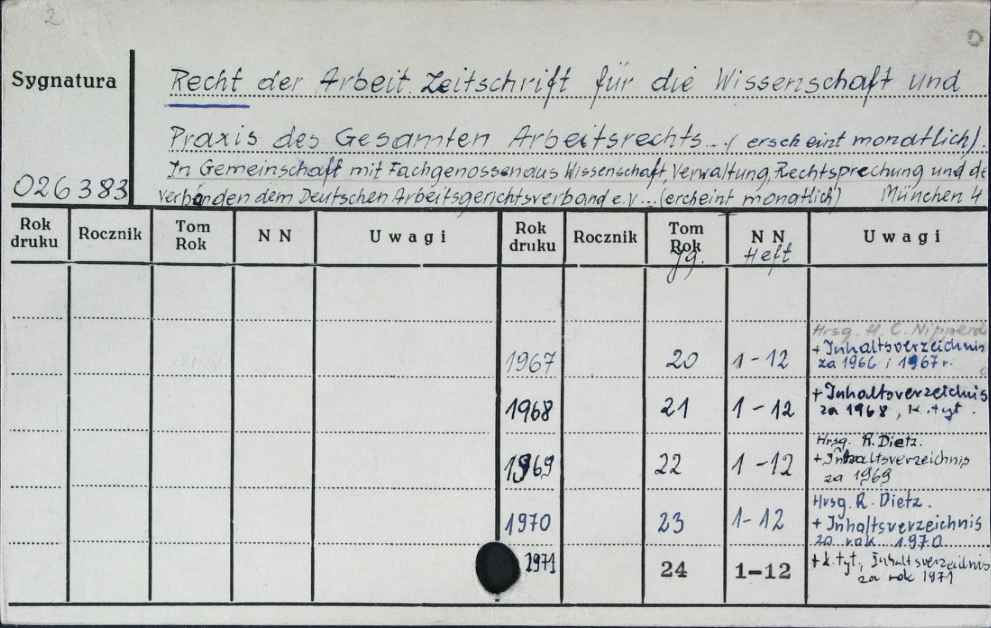 2
Sygnatura
Recht der Arbeit. Zeitschrift für die Wissenschaft und
Praxis des Gesamten Arbeitsrechts... (erscheint monatlich)
In Gemeinschaft mit Fachgenossen aus Wissenschaft, Verwaltung, Rechtsprechung und de
026383 verbänden dem Deutschen Arbeitsgerichtsverband e.v ... (ercheint monatlich) München 4
Rok druku Rocznik Tom Rok N N Uwagi Rok druku Rocznik Tom Rok N N Uwagi
Jg. Heft
Hrsg. H. C. Nipperd
1967 20 1-12 + Inhaltsverzeichnis
za 1966 i 1967 r.
1968 21 1-12 + Inhaltsverzeichnis
za 1968, k. tyt.
Hrsg. R. Dietz.
1969 22 1-12 + Inhaltsverzeichnis
za 1969
Hrsg. R. Dietz.
1970 23 1-12 + Inhaltsverzeichnis
za rok 1970
1971 24 1-12 + k. tyt., Inhaltsverzeichnis
za rok 1971